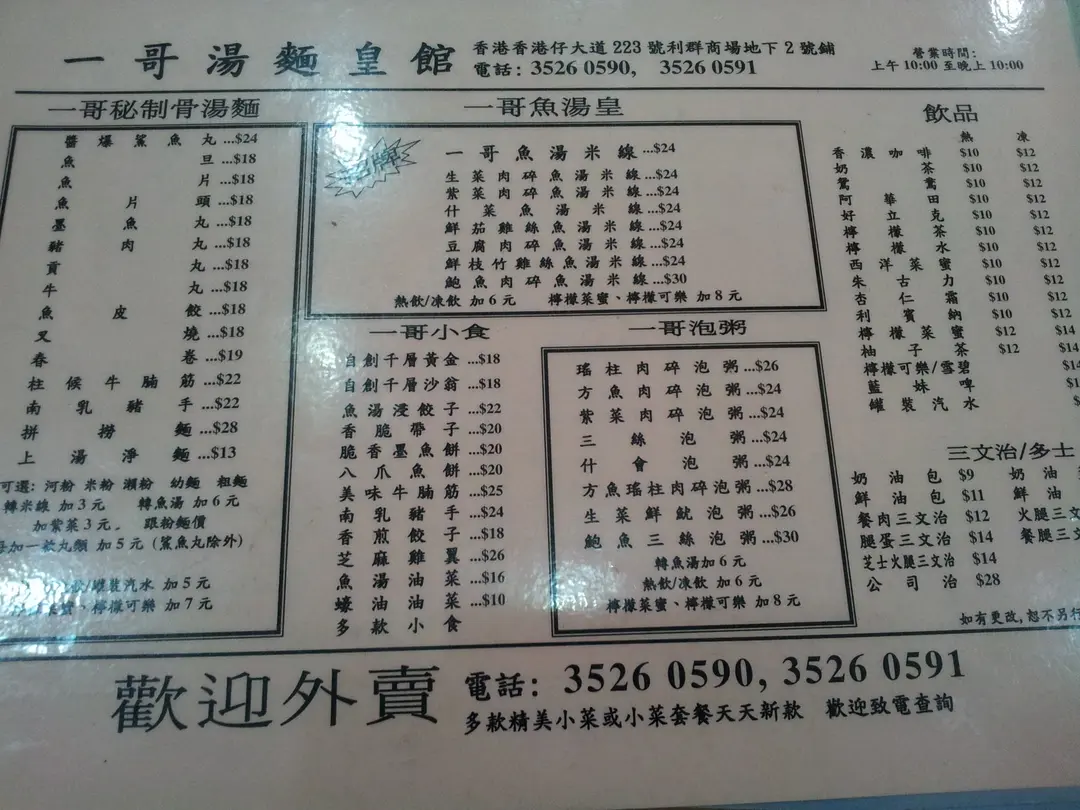 一哥湯麵皇館
香港香港仔大道 223 號利群商場地下 2 號鋪
電話: 3526 0590, 3526 0591
營業時間:
上午 10:00 至晚上 10:00
一哥秘制骨湯麵
醬爆鯊魚丸...$24
魚旦...$18
魚片...$18
魚片頭...$18
墨魚丸...$18
豬肉丸...$18
貢丸...$18
牛丸...$18
魚皮餃...$18
叉燒...$18
春卷...$19
柱候牛腩筋...$22
南乳豬手...$22
拼撈麵...$28
上湯淨麵...$13
可選: 河粉 米粉 瀨粉 幼麵 粗麵
轉米線 加 3 元 轉魚湯 加 6 元
加紫菜 3 元。 跟粉麵價
加一款丸類 加 5 元 (鯊魚丸除外)
飲/罐裝汽水 加 5 元
菜蜜、檸檬可樂 加 7 元
一哥魚湯皇
一哥魚湯米線...$24
生菜肉碎魚湯米線...$24
紫菜肉碎魚湯米線...$24
什菜魚湯米線...$24
鮮茄雞絲魚湯米線...$24
豆腐肉碎魚湯米線...$24
鮮枝竹雞絲魚湯米線...$24
鮑魚肉碎魚湯米線...$30
熱飲/凍飲 加 6 元 檸檬菜蜜、檸檬可樂 加 8 元
一哥小食
自創千層黃金...$18
自創千層沙翁...$18
魚湯浸餃子...$22
香脆帶子...$20
脆香墨魚餅...$20
八爪魚餅...$20
美味牛腩筋...$25
南乳豬手...$24
香煎餃子...$18
芝麻雞翼...$26
魚湯油菜...$16
蠔油油菜...$10
多款小食
一哥泡粥
瑤柱肉碎泡粥...$26
方魚肉碎泡粥...$24
紫菜肉碎泡粥...$24
三絲泡粥...$24
什會泡粥...$24
方魚瑤柱肉碎泡粥...$28
生菜鮮魷泡粥...$26
鮑魚三絲泡粥...$30
轉魚湯加 6 元
熱飲/凍飲 加 6 元
檸檬菜蜜、檸檬可樂 加 8 元
飲品
熱 凍
香濃咖啡 $10 $12
奶茶 $10 $12
鴛鴦 $10 $12
阿華田 $10 $12
好立克 $10 $12
檸檬茶 $10 $12
檸檬水 $10 $12
西洋菜蜜 $10 $12
朱古力 $10 $12
杏仁霜 $10 $12
利賓納 $10 $12
檸檬菜蜜 $12 $14
柚子茶 $12 $14
檸檬可樂/雪碧 $14
藍妹啤
罐裝汽水
三文治/多士
奶油包 $9 奶油
鮮油包 $11 鮮油
餐肉三文治 $12 火腿三文
腿蛋三文治 $14 餐腿三文
芝士火腿三文治 $14
公司治 $28
如有更改,恕不另行
歡迎外賣
電話: 3526 0590, 3526 0591
多款精美小菜或小菜套餐天天新款 歡迎致電查詢